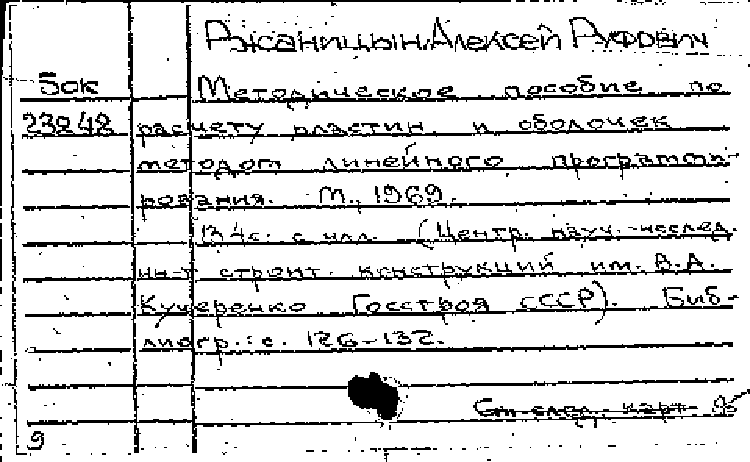 Ржаницын Алексей Руфович
5ок Методическое пособие по
23242 расчету пластин и оболочек
методом линейного программи-
рования. М., 1969.
134с. с илл. (Центр. науч.-исслед.
ин-т строит. конструкций им. В.А.
Кучеренко Госстроя СССР). Биб-
лиогр.: с. 126-132.
См. след. карт.
9